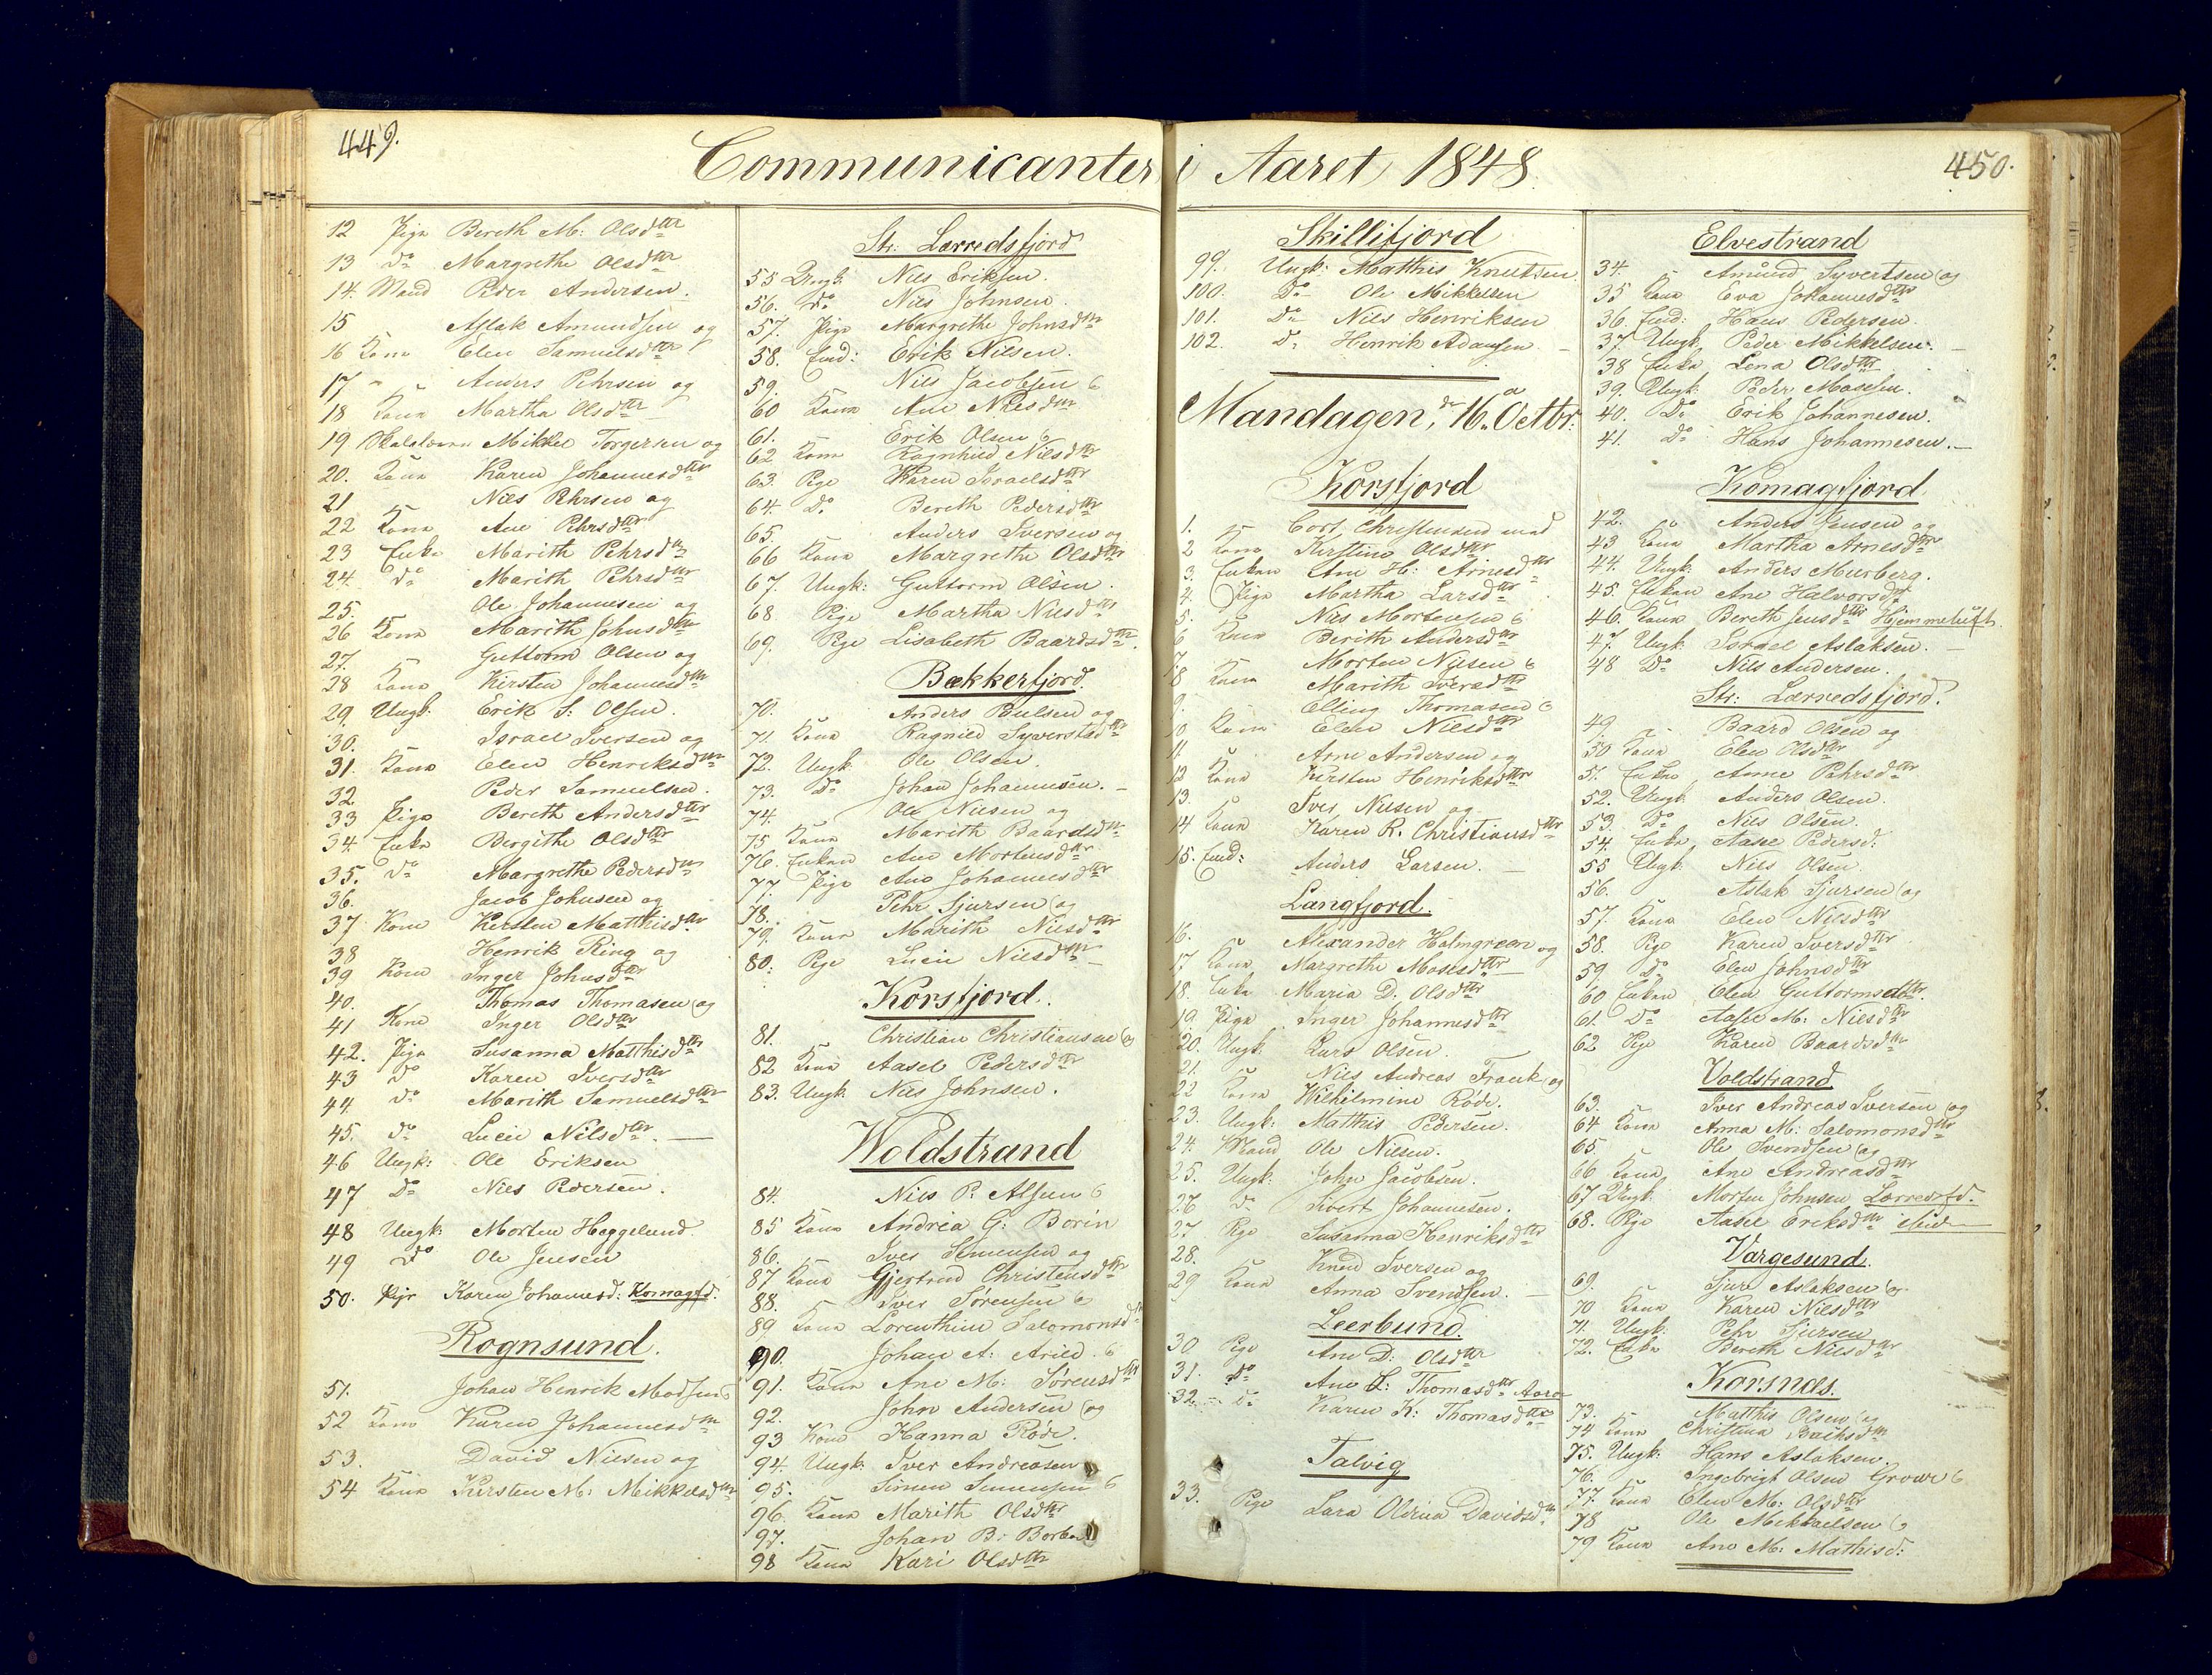 449.
Communicanter i Aaret 1848.
450.
12 Pige Bereth M: Olsdttr
13 Do Margrethe Olsdttr
14. Mand Peder Andersen.
15 Aslak Amundsen og
16 Kone Elen Samuelsdttr
17 Anders Pehrsen og
18 Kone Martha Olsdttr
19 Mikkel Torgersen og
20. Kone Karen Johannesdttr
21 Nils Pehrsen og
22 Kone Ane Pehrsdttr
23 Enke Marith Pehrsdttr
24. Do Marith Pehrsdttr
25. Ole Johannesen og
26 Kone Marith Johnsdttr
27. Guttorm Olsen og
28 Kone Kirsten Johannesdttr
29. Ungk: Erik S: Olsen.
30. Israel Iversen og
31. Kone Elen Henriksdttr
32 Peder Samuelsen.
33 Pige Bereth Andersdttr
34 Enke Birgithe Olsdttr
35. Do Margrethe Pedersdttr
36. Jacob Johnsen og
37 Kone Kirsten Matthisdttr
38 Henrik Ring og
39 Kone Inger Johnsdttr
40. Thomas Thomasen og
41 Kone Inger Olsdttr
42. Pige Susanna Matthisdttr
43 Do Karen Iversdttr
44 Do Marith Samuelsdttr
45. Do Lucie Nilsdttr.
46 Ungk: Ole Eriksen
47 Do Niels Pedersen.
48 Ungk: Morten Heggelund.
49 Do Ole Jensen
50. Pige Karen Johannesd: Komagfd.
Rognsund.
51. Johan Henrik Madsen
52 Kone Karen Johannesdttr
53. David Nilsen og
54 Kone Kirsten M: Mikkelsdttr
Str: Lerredsfjord
55 Ungk: Nils Eriksen.
56. Do Nils Johnsen.
57. Pige Margrethe Johnsdttr
58. Emd: Erik Nilsen.
59. Nils Jacobsen
60 Kone Ane Nilsdttr
61. Erik Olsen
62 Kone Ragnhild Nilsdttr
63. Pige Karen Israelsdttr
64. Do Bereth Pedersdttr
65. Anders Iversen og
66 Kone Margrethe Olsdttr
67. Ungk: Guttorm Olsen.
68 Pige Martha Nilsdttr
69. Pige Lisabeth Baardsdttr.
Bekkerfjord.
70. Anders Poulsen og
71. Kone Ragnild Syverstdttr
72. Ungk: Ole Olsen.
73. Do Johan Johannesen.
74. Ole Nilsen og
75 Kone Marith Baardsdttr
76. Enken Ane Mortensdttr
77. Pige Ane Johannesdttr
78. Pehr Sjursen og
79. Kone Marith Nilsdttr
80. Pige Lucie Nilsdttr
Korsfjord.
81. Christian Christiansen og
82 Kone Aasel Pedersdttr
83. Ungk: Nils Johnsen.
Woldstrand
84. Nils P. Alsen
85 Kone Andrea G: Borin
86. Iver Simensen og
87. Kone Gjertrud Christensdttr
88. Iver Sørensen
89 Kone Lorenthine Salomonsd
90. Johan A: Arild.
91. Kone Ane M: Sørensdttr
92. John Andersen og
93 Kone Hanna Röde.
94. Ungk: Iver Andreasen
95. Simen Simensen
96. Kone Marith Olsdttr
97. Johan B:
98 Kone Kari Olsdttr
Skillifjord
99. Ungk: Matthis Knutsen
100. Do Ole Mikkelsen
101. Do Nils Henriksen
102. Do Henrik Adamsen.
Mandagen, d: 16. Octbr:
Korsfjord
1. Cort Christensen med
2 Kone Kirstine Olsdttr
3. Enken Ane H: Arnesdttr
4. Pige Martha Larsdttr
5. Nils Mortensen
6 Kone Berith Andersdttr
7. Morten Nilsen
8 Kone Marith Iversdttr
9. Elling Thomasen
10 Kone Elen Nilsdttr
11 Arne Andersen og
12 Kone Kirsten Henriksdttr
13. Iver Nilsen og
14 Kone Karen R. Christiansdttr
15. Emd: Anders Larsen.
Langfjord.
16. Alexander Holmgreen og
17 Kone Margrethe Mosesdttr
18. Enke Maria D. Olsdttr
19. Pige Inger Johannesdttr
20. Ungk: Lars Olsen.
21. Nils Andreas Frank og
22 Kone Wilhelmine Röde.
23. Ungk: Matthis Pedersen.
24. Mand Ole Nilsen.
25. Ungk: John Jacobsen.
26 Do Sivert Johannesen.
27 Pige Susanna Henriksdttr
28. Knud Iversen og
29 Kone Anna Svendsen.
Leerbund.
30 Pige Ane D: Olsdttr
31. Do Ane L: Thomasdttr
32 Do Karen K: Thomasdttr
Talvig
33. Pige Lara Olrina Davidsdttr
Elvestrand
34. Amund Syvertsen og
35 Kone Eva Johannesdttr
36. Emd: Hans Pedersen.
37. Ungk: Peder Mikkelsen.
38 Enke Lena Olsdttr
39. Ungk: Peder Mosesen.
40. Do Erik Johannesen.
41. Do Hans Johannesen.
Komagfjord
42. Anders Jensen og
43 Kone Martha Arnesdttr
44. Ungk: Anders Murberg.
45. Enken Ane Halvorsdttr
46. Kone Bereth Jensdttr Hjemmeluft.
47. Ungk: Israel Aslaksen.
48 Do Nils Andersen.
Str: Lerredsfjord.
49 Baard Olsen og
50 Kone Elen Olsdttr
51. Enke Anne Pehrsdttr
52. Ungk: Anders Olsen.
53. Do Nils Olsen.
54. Enke, Aasel Pedersd.
55 Ungk: Nils Olsen.
56. Aslak Sjursen og
57. Kone Elen Nilsdttr
58. Pige Karen Iversdttr
59. Do Elen Johnsdttr
60 Enken Elen Guttormsdttr.
61. Do Aasel M: Nilsdttr
62 Pige Karen Baardsdttr
Voldstrand
63. Iver Andreas Iversen og
64 Kone Anna M: Salomonsdttr
65. Ole Svendsen og
66 Kone Ane Andreasdttr
67 Ungk: Morten Johnsen Lerredsfd.
68. Pige Aasel Eriksdttr ibid
Vargesund.
69. Sjur Aslaksen og
70 Kone Karen Nilsdttr
71. Ungk: Pehr Sjursen
72. Enke Bereth Nilsdttr
Korsnæs.
73. Matthis Olsen og
74 Kone Christina
75. Ungk: Hans Aslaksen.
76. Ingebrigt Olsen Growe
77. Kone Elen M: Olsdttr
78 Ole Mikkaelsen
79 Kone Ane M: Mathisd: